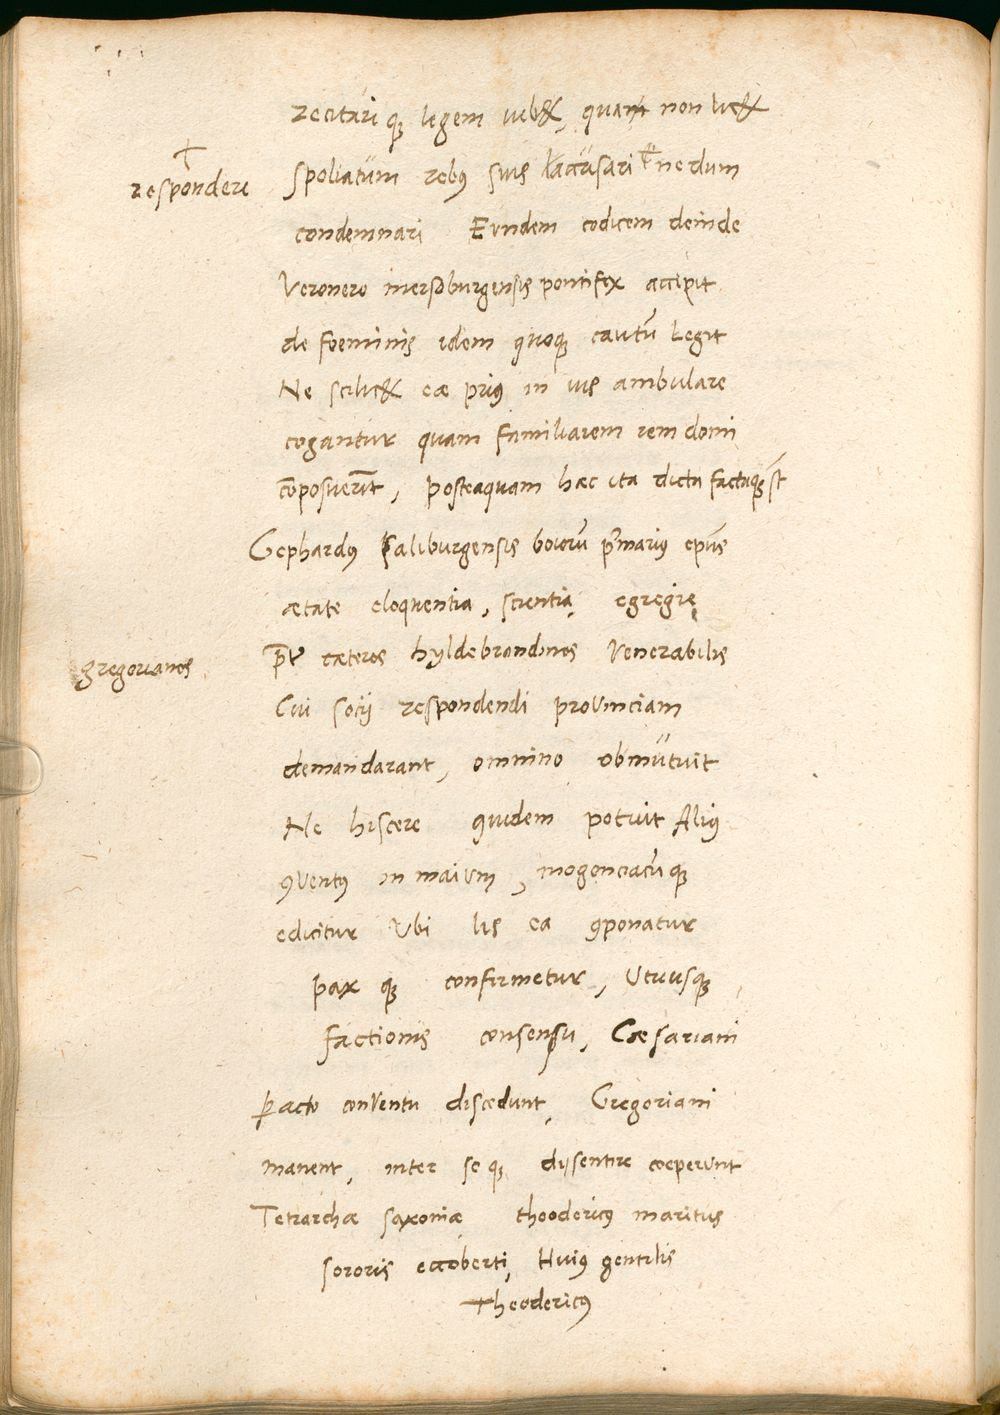 recitari q; legem iub&, quam non lic&
†
respondere
spoliatum rebus suis accusari † nedum
condemnari Eundem codicem deinde
Veronero mersoburgensis pontifex accipit
de foeminis idem quoq; cautū Legit
Ne scilic& eæ prius in ius ambulare
cogantur quam familiarem rem domi
cōposuerīt, posteaquam hæc ita dicta factaq; st
Gephardus saliburgensis boiorū pmarius epūs
ætate eloquentia, scientia, egregie
gregorianos
p̄t cæteros hyldebrondinos Venerabilis
Cui socij respondendi provinciam
demandarant, omnino obmutuit
Ne hiscere quidem potuit Alius
9ventus in maium, mogonciacūq;
edicitur Vbi lis ea 9ponatur
pax q; confirmetur, Utriusq;
factionis consensu, Cæsariani
pacto conventu discedunt, Gregoriani
manent, inter se q; dissentire coeperunt
Tetrarcha saxoniæ theodericus maritus
sororis eccoberti, Huius gentilis
Theodericus